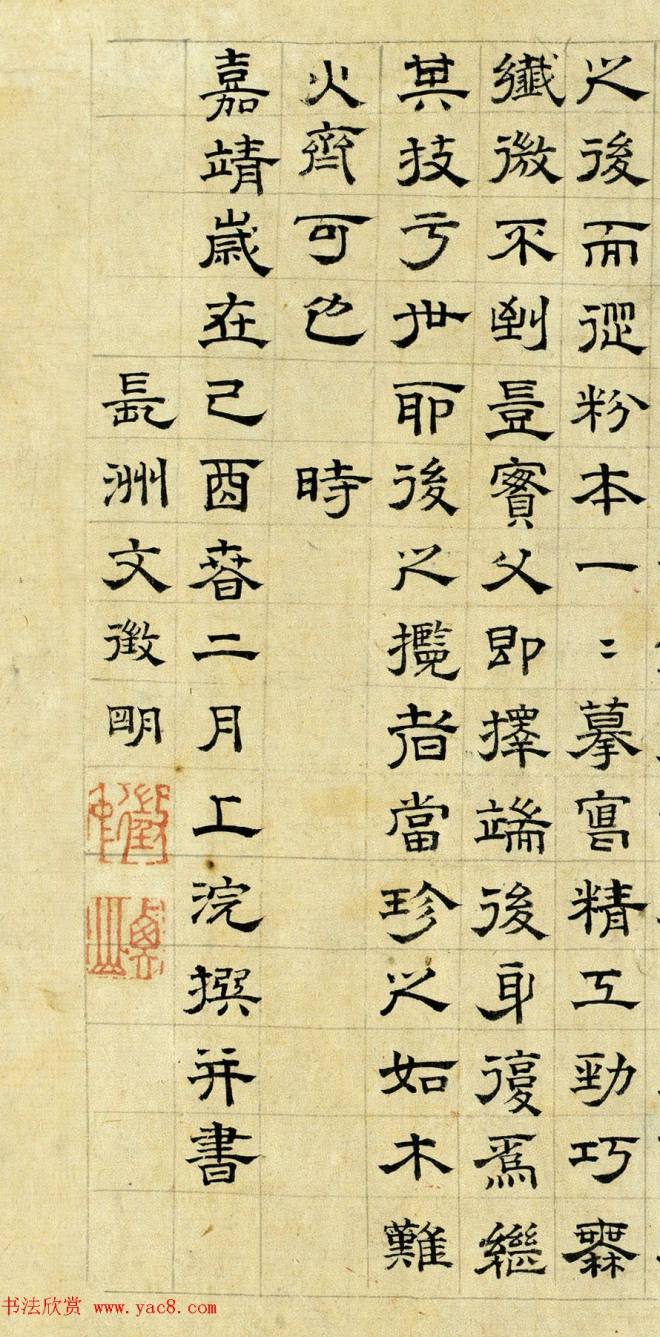 之後而從粉本一〻摹寫精工勁巧無
纖微不到豈實父即擇端後身復為繼
其技亏世耶後之攬者當珍之如木難
火齊可也 時
嘉靖歲在己酉春二月上浣撰并書
長洲文徵明
徵仲
书法欣赏 www.yac8.com